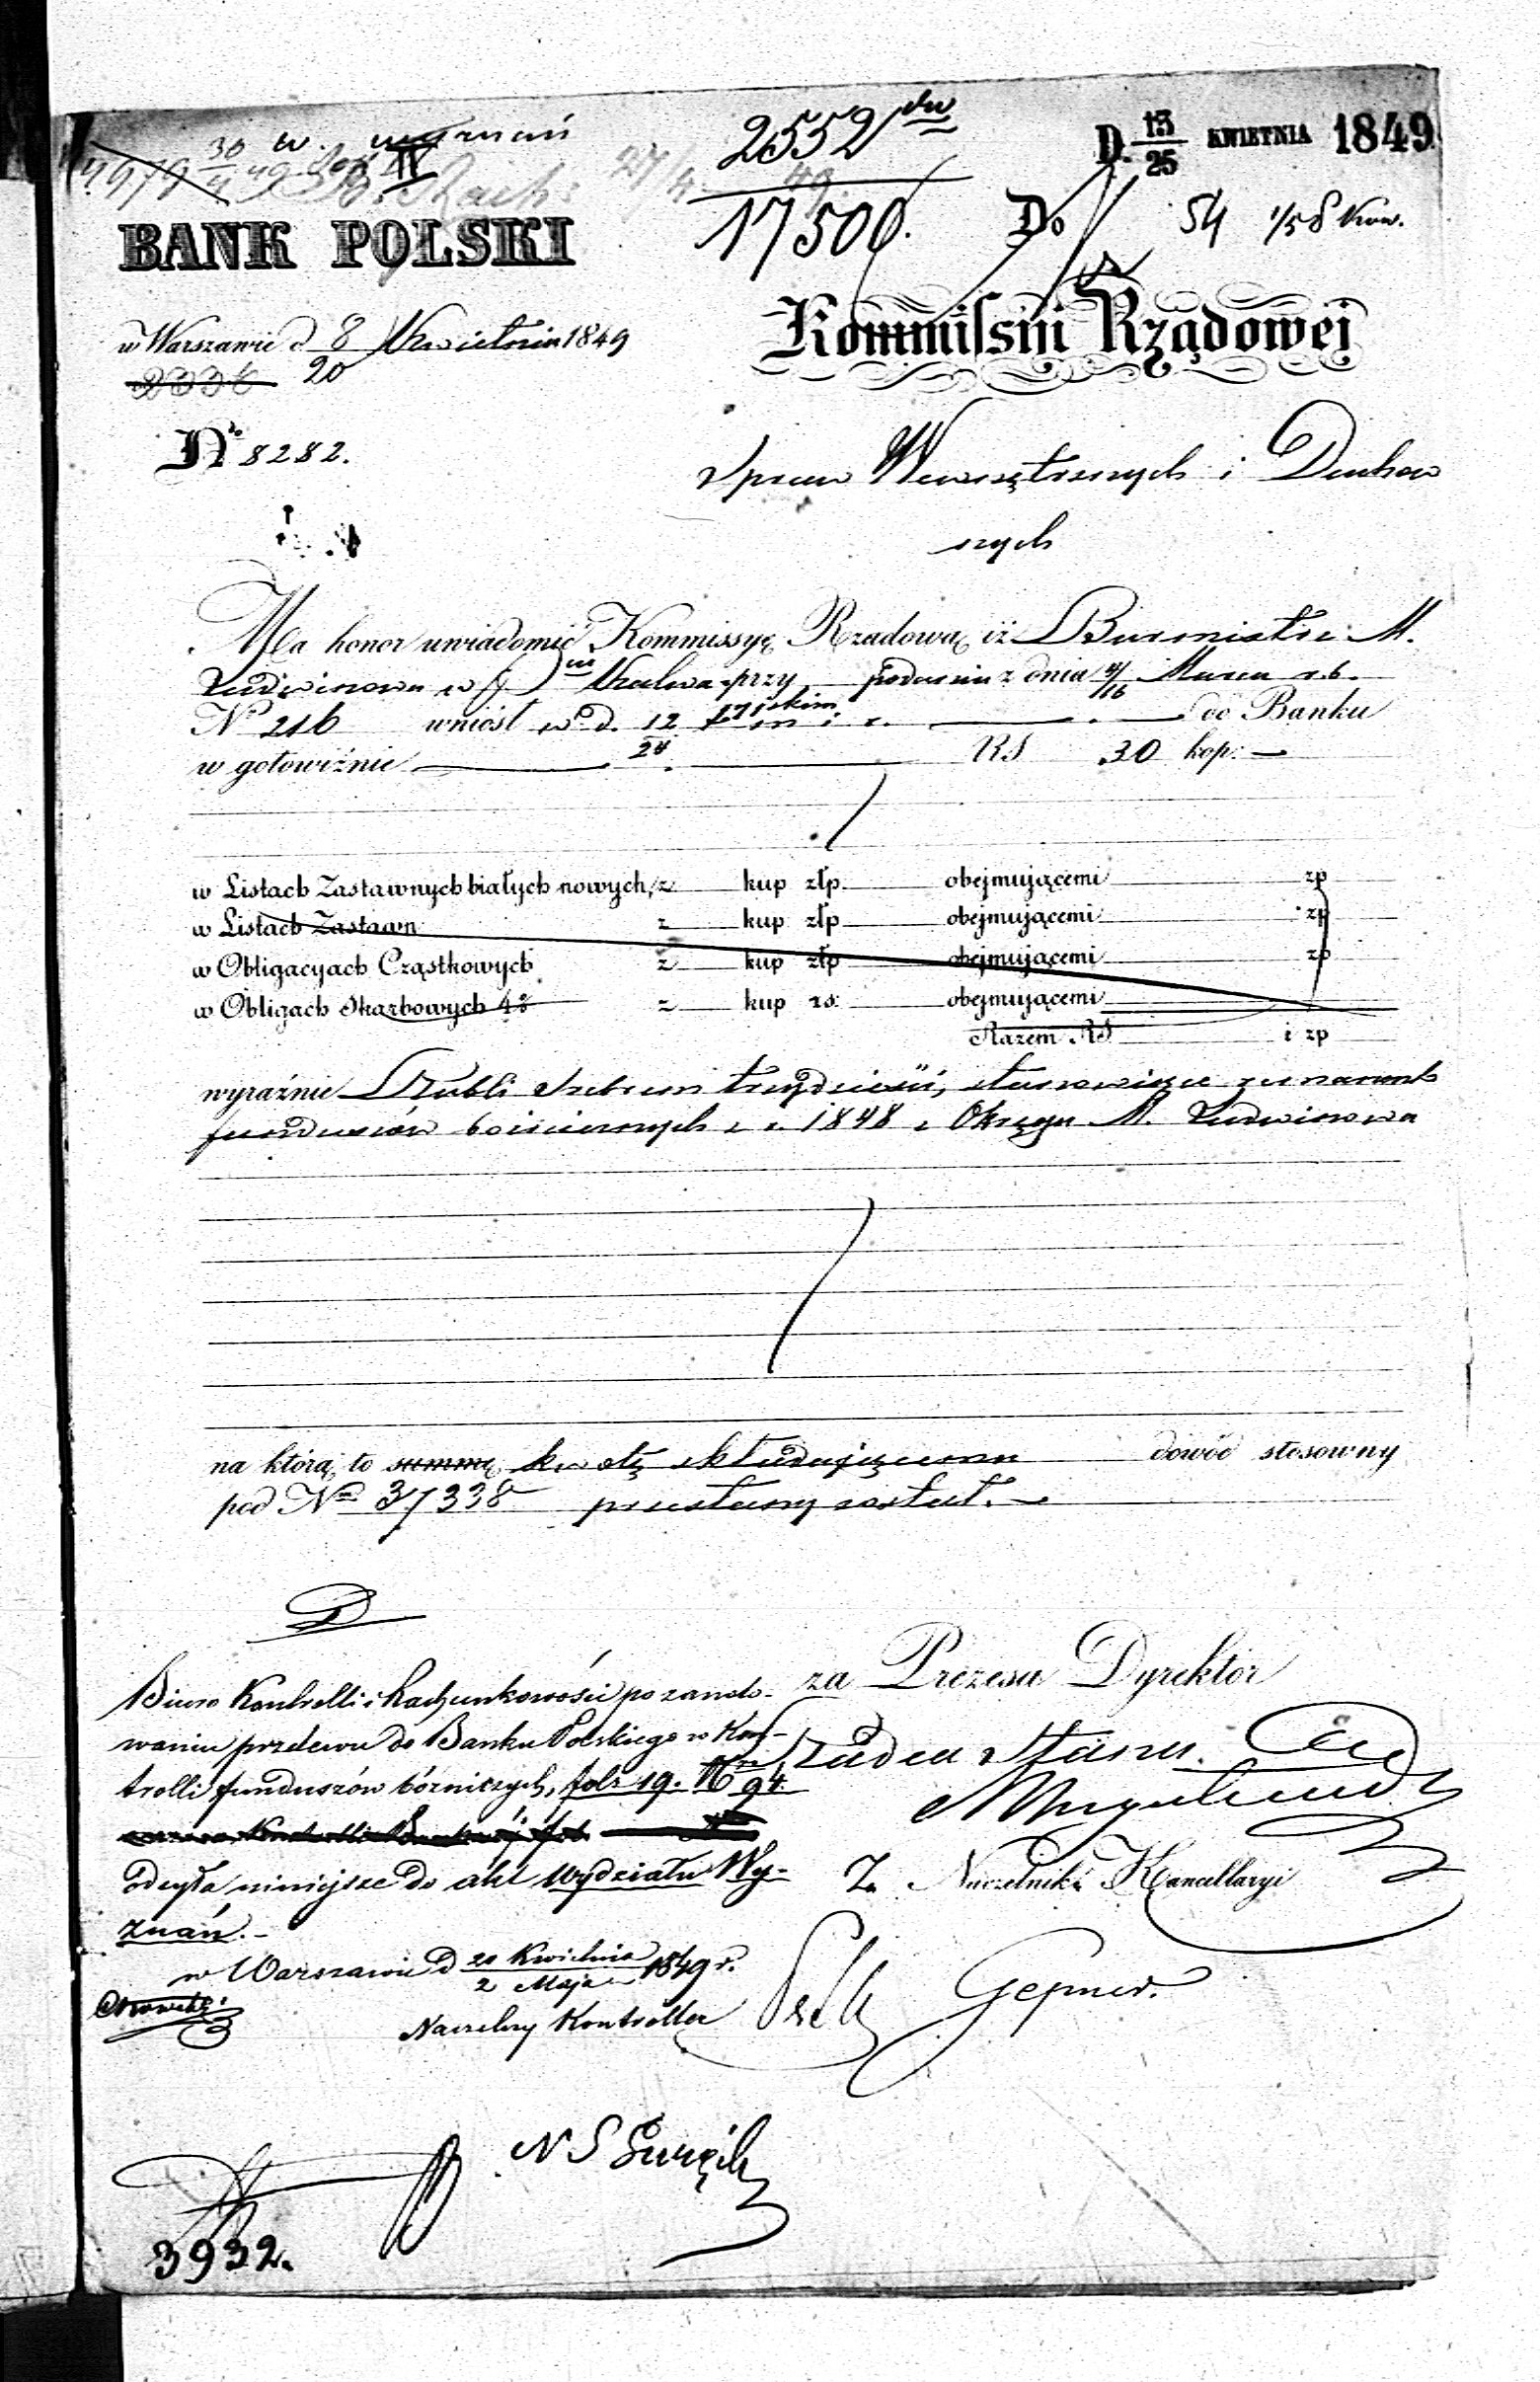 w. wyznań
2552
17506.
D. 13/25 KWIETNIA 1849
BANK POLSKI
Do 54
w Warszawie d 8/20 Kwietnia 1849
Kommissyi Rządowej
No 8282.
Spraw Wewnętrznych i Duchow
nych
Ma honor uwiadomić Kommissyę Rządową iż Burmistrz M.
Ludwinowa w przy podaniu z dnia 4/16 Marca r.b.
No 216 wniósł w d. 12/24 do Banku
w gotowiźnie RS 30 kop: —
w Listach Zastawnych białych nowych, z kup złp. obejmującemi zp
w Listach Zastawn z kup złp obejmującemi zp
w Obligacyach Cząstkowych z kup złp obejmującemi zp
w Obligach Skarbowych 4% z kup rs: obejmującemi
Razem RS i zp
wyraźnie Rubli Srebrem trzydzieści, stanowiące
funduszów bożniczych z r. 1848 z Okręgu M. Ludwinowa
na którą to summę kwotę składającemu dowód stosowny
pod No 37338 przesłany został.
Biuro Kontrolli i Rachunkowości po zanoto-
waniu przelewu do Banku Polskiego w Kon-
trolli funduszów bóżniczych, folio 19. No 94.
odsyła niniejsze do akt Wydziału Wy-
znań.-
w Warszawie d 20 Kwietnia/2 Maja 1849 r.
Naczelny Kontroller
za Prezesa Dyrektor
Radca Stanu.
Za Naczelnika Kancellaryi
Gepner.
3932.